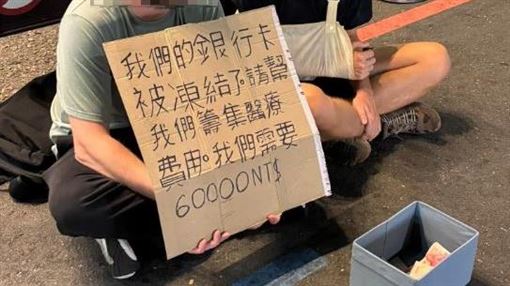 我們的銀行卡
被凍結了。請幫
我們籌集醫療
費用。我們需要
60000NT$